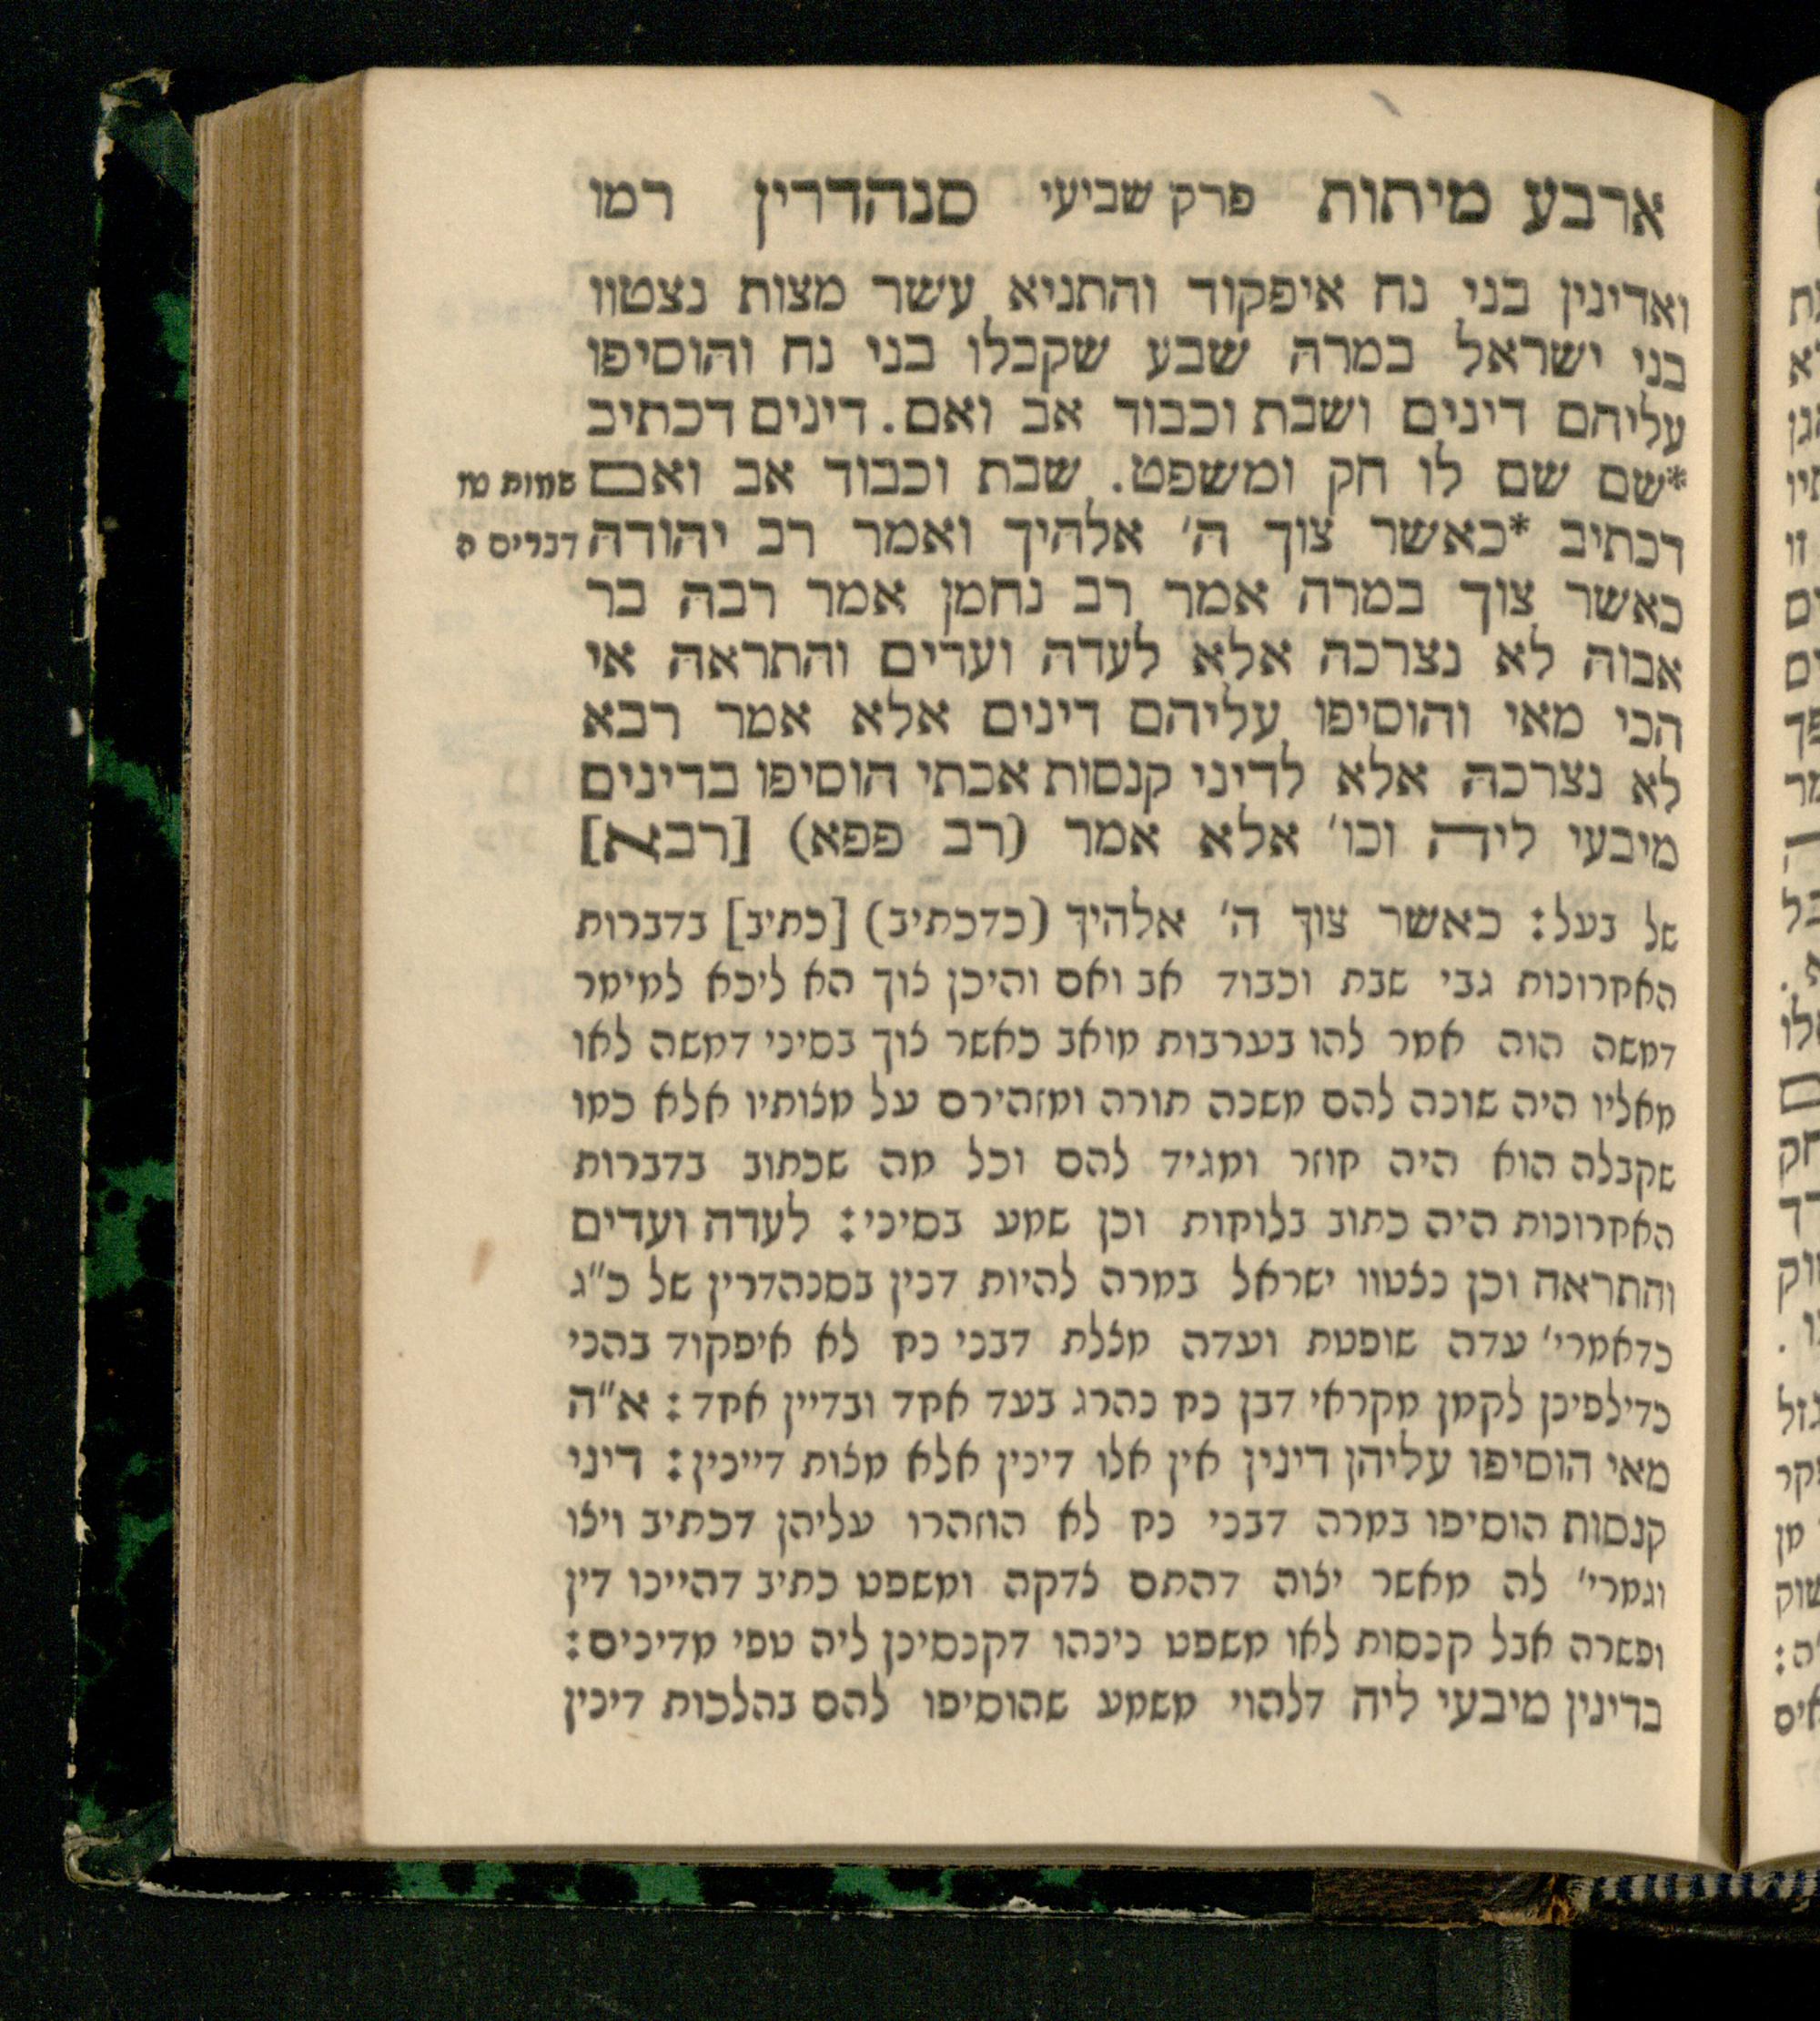 ארבע מיתות פרק שביעי סנהדרין רמו
ואדינין בני נח איפקוד והתניא עשר מצות נצטוו
בני ישראל במרה שבע שקבלו בני נח והוסיפו
עליהם דינים ושבת וכבוד אב ואם. דינים דכתיב
*שם שם לו חק ומשפט. שבת וכבוד אב ואם
שמות טו
דכתיב *כאשר צוך ה' אלהיך ואמר רב יהודה
דברים ה
כאשר צוך במרה אמר רב נחמן אמר רבה בר
אבוה לא נצרכה אלא לעדה ועדים והתראה אי
הכי מאי והוסיפו עליהם דינים אלא אמר רבא
לא נצרכה אלא לדיני קנסות אכתי הוסיפו בדינים
מיבעי ליה וכו' אלא אמר (רב פפא) [רבא]
של בעל: כאשר צוך ה' אלהיך (כדכתיב) [כתיב] בדברות
האחרונות גבי שבת וכבוד אב ואם והיכן צוך הא ליכא למימר
דמשה הוה אמר להו בערבות מואב כאשר צוך בסיני דמשה לאו
מאליו היה שונה להם משנה תורה ומזהירם על מצותיו אלא כמו
שקבלה הוא היה חוזר ומגיד להם וכל מה שכתוב בדברות
האחרונות היה כתוב בלוחות וכן שמע בסיני: לעדה ועדים
והתראה וכן נצטוו ישראל במרה להיות דנין בסנהדרין של כ"ג
כדאמרי' עדה שופטת ועדה מצלת דבני נח לא איפקוד בהכי
כדילפינן לקמן מקראי דבן נח נהרג בעד אחד ובדיין אחד: א"ה
מאי הוסיפו עליהן דינין אין אלו דינין אלא מצות דיינין: דיני
קנסות הוסיפו במרה דבני נח לא הוזהרו עליהן דכתיב ויצו
וגמרי' לה מאשר יצוה דהתם צדקה ומשפט כתיב דהיינו דין
ופשרה אבל קנסות לאו משפט נינהו דקנסינן ליה טפי מדינים:
בדינין מיבעי ליה דלהוי משמע שהוסיפו להם בהלכות דינין